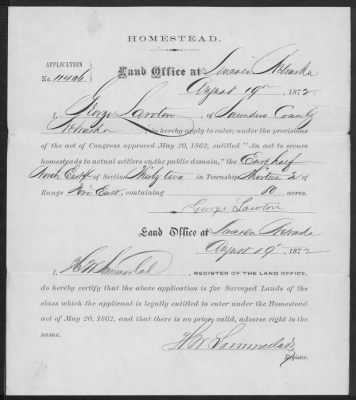 HOMESTEAD.
APPLICATION
No. 11406
Land Office at Lincoln Nebraska
August 19th, 1872
I, George Lawton, of Saunders County
Nebraska do hereby apply to enter, under the provisions
of the act of Congress approved May 20, 1862, entitled "An act to secure
homesteads to actual settlers on the public domain," the East half
North East 4 of Section Thirty two in Township Thirteen N of
Range Nine East, containing 80 acres.
George Lawton
Land Office at Lincoln Nebraska
August 19th, 1872
I, REGISTER OF THE LAND OFFICE,
do hereby certify that the above application is for Surveyed Lands of the
class which the applicant is legally entitled to enter under the Homestead
act of May 20, 1862, and that there is no prior, valid, adverse right to the
same.
Register.